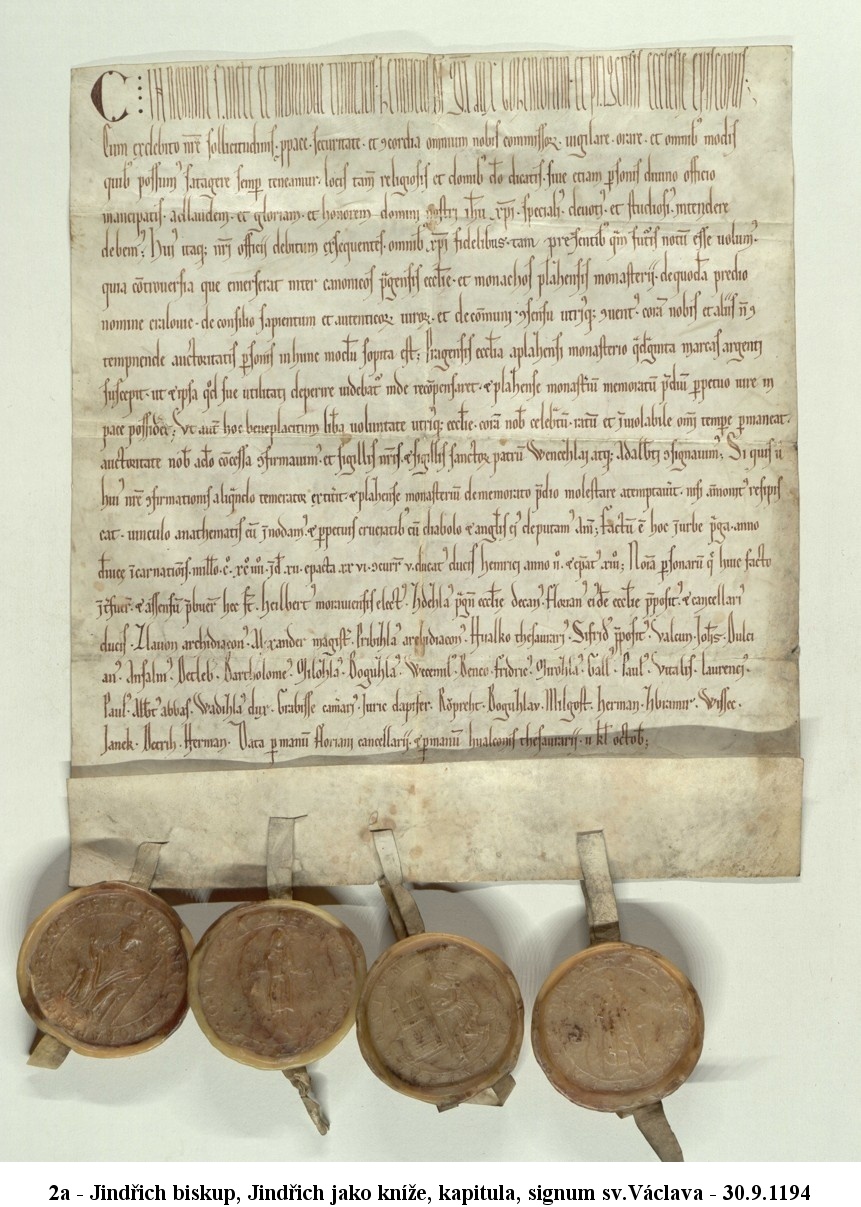 C IN nomine sancte et individue trinitatis. Heinricus di gra dux boemorum. et pragensis ecclesie episcopus.
Cum ex debito nre sollicitudinis. p pace. securitate. et ɔcordia omnium nobis commissor. uigilare. orare. et omnib modis
quib possum satagere semp teneamur. locis tam religiosis et domib do dicatis. siue etiam psonis diuino officio
mancipatis. ad laudem. et gloriam. et honorem domini nostri ihu xpi. speciali deuoti et studiosi intendere
debem. Hui itaq; nri officii debitum exsequentes. omnib xpi fidelibus. tam presentib qm futis notu esse uolum.
quia cōtrouersia que emerserat inter canonicos pgensis ecclie. et monachos plahensis monasterii. de quoda predio
nomine erilowe. de consilio sapientum et autenticor uiror. et de cōmuni ɔsensu utriq; ɔuent. cora nobis et aliis n
tempnende auctoritatis psonis in hunc modu sopita est. Pragensis ecclia a plahensi monasterio qdginta marcas argenti
suscepit. ut et ipsa qd sue utilitati deperire uidebat inde recōpensaret. et plahense monastiu memoratu pdiu ppetuo iure in
pace possidet. Vt aut hoc beneplacitum liba uoluntate utriq; ecclie. cora nob celebtu. ratu et iuiolabile omi tempe pmaneat.
auctoritate nob a do cōcessa ɔfirmauim. et sigillis nris. et sigillis sanctor patru Wencehlai atq; Adalbti ɔsignauim. Si quis u
hui nre ɔfirmationis aliqndo temerator extitit. et plahense monasteriu de memorato pdio molestare atemptauit. nisi āmonit resipis
cat. uinculo anathematis cu inodam. et ppetuis cruciatib cu diabolo et anglis ei deputam. am. factu e hoc i urbe pga. anno
diuice icarnationis. millo. c. xc. iiii. id. xii. epacta xx vi. ɔcurr v. ducat ducis heinrici anno ii. et epat xiii. Noia psonaru q huic facto
itfuer. et assensu pbuer hec st. heilbert morauiensis elect. hdehla pgn ecclie decan. florian eide ecclie pposit. et cancellari
ducis. Ilarion archidiacon. Alxander magist. Pribihla archidiacon. Hualko thesaurari. Sifrid pposit. Valcun. Johs. Dulci
an. Anselm. Detleb. Bartholome. Milohla. Boguhla. Wecemil. Benco. fridric. Mirohla. Gall. Paul. Vitalis. laurenci.
Paul. Abt abbas. Wadihla dux. Grabisse camari. Juric dapifer. Ropreht. Boguhlav. Milgost. herman. Hbramir. Wissec.
Janek. Detrih. Herman. Data p manu floriani cancellarii. et p manum hualconis thesaurarii. ii kl octob;
2a - Jindřich biskup, Jindřich jako kníže, kapitula, signum sv.Václava - 30.9.1194